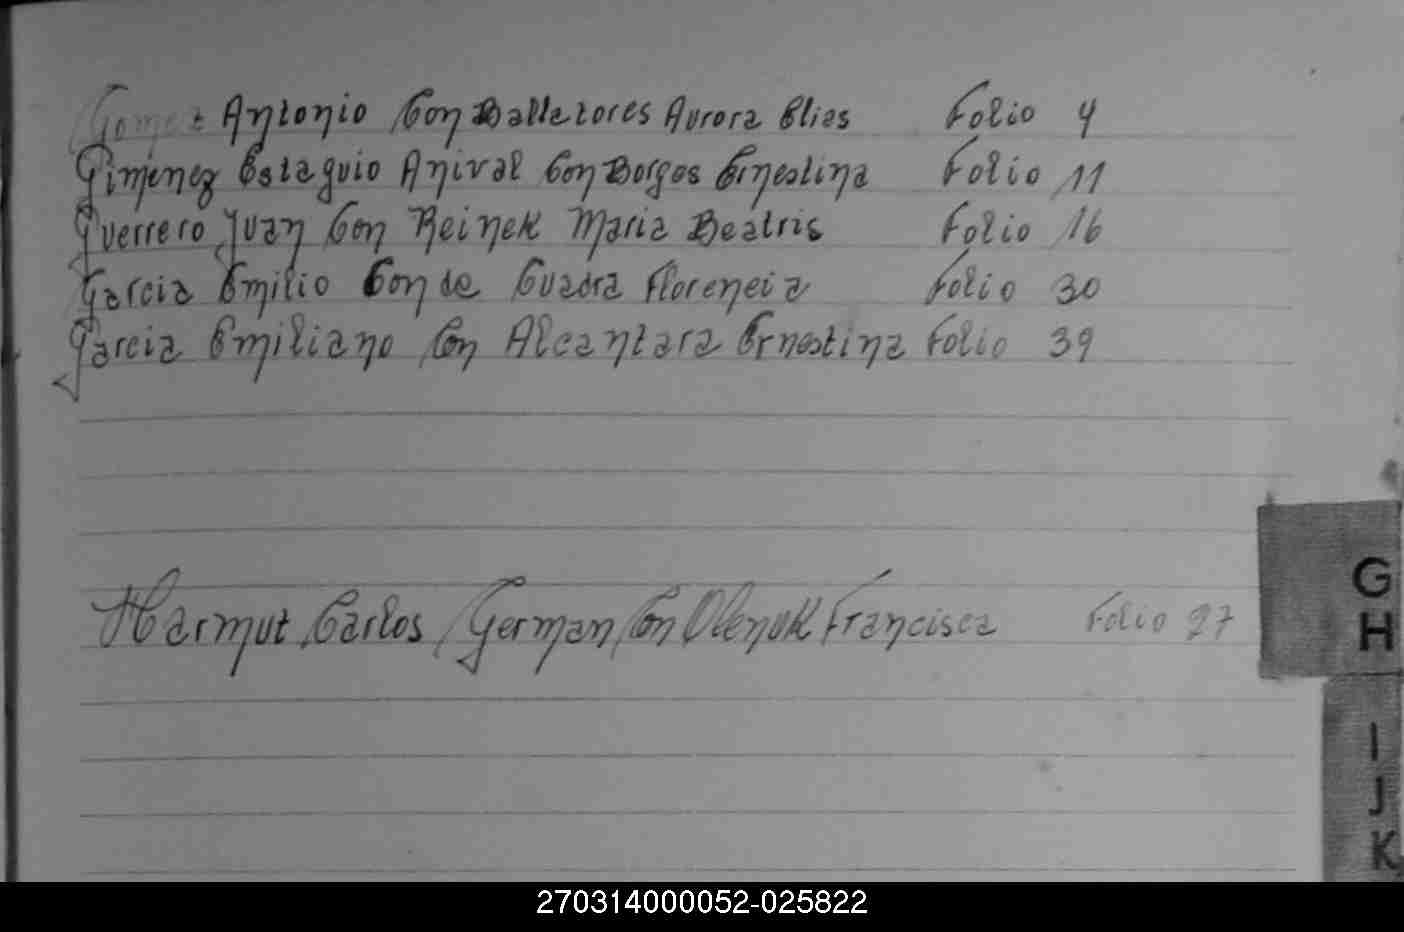 Gomez Antonio Con Balletores Aurora Elias Folio 4
Gimenez Estaguio Anival Con Borgos Ernestina Folio 11
Guerrero Juan Con Reinek Maria Beatris Folio 16
Garcia Emilio Con de Cuadra Florencia Folio 30
Garcia Emiliano Con Alcantara Ernestina Folio 39
G
H
Harmut Carlos German Con Olenuk Francisca Folio 27
I
J
K
270314000052-025822